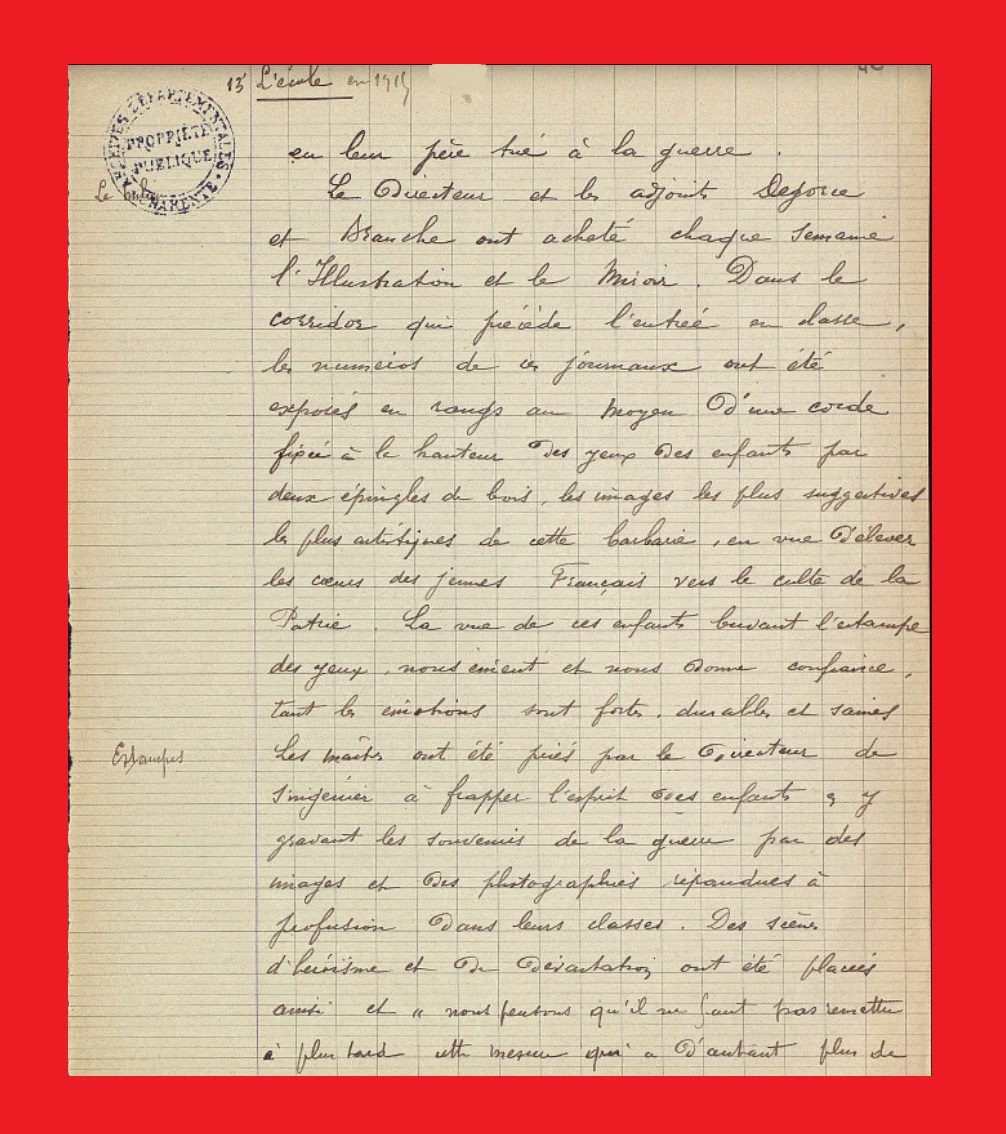 13° L'école en 1915
ARCHIVES DÉPARTEMENTALES
PROPRIÉTÉ
PUBLIQUE
CHARENTE
eu leur père tué à la guerre.
Le
Le Directeur et les adjoints
et Branche ont acheté chaque semaine
l'Illustration et le Miroir. Dans le
corridor qui précède l'entrée en classe,
les numéros de ces journaux ont été
exposés en rangs au moyen d'une corde
fixée à la hauteur des yeux des enfants par
deux épingles de bois, les images les plus suggestives
les plus artistiques de cette barbarie, en vue d'élever
les cœurs des jeunes Français vers le culte de la
Patrie. La vue de ces enfants buvant l'estampe
des yeux, nous émeut et nous donne confiance,
tant les émotions sont fortes, durables et saines
Estampes
Les maîtres ont été priés par le Directeur de
s'ingénier à frapper l'esprit des enfants en y
gravant les souvenirs de la guerre par des
images et des photographies répandues à
profusion dans leurs classes. Des scènes
d'héroïsme et de dévastation ont été placées
ainsi et " nous pensons qu'il ne faut pas remettre
à plus tard cette mesure qui a d'autant plus de